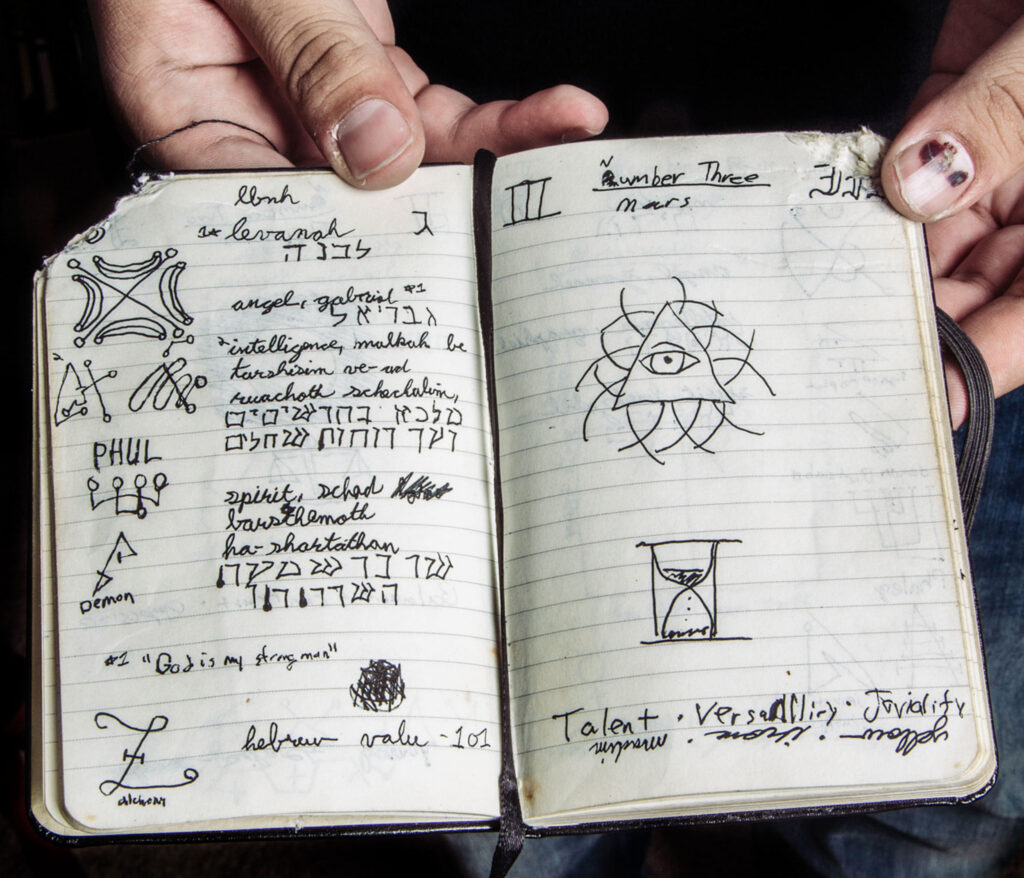 lbnh
1* levanah
ג
לבנה
angel, gabriel #1
גבריאל
intelligence, malkah be
tarshisim ve-ad
ruachoth schechalim,
מלכא בתרשיםים
ועד רוחות שחלים
PHUL
spirit, schad
barsthemoth
ha-shartathan
שד בר שמעת
Demon
#1 "God is my strong man"
hebrew value - 101
alchemy
III
Number Three
mars
Talent . Versatility . Jovidity
yellow